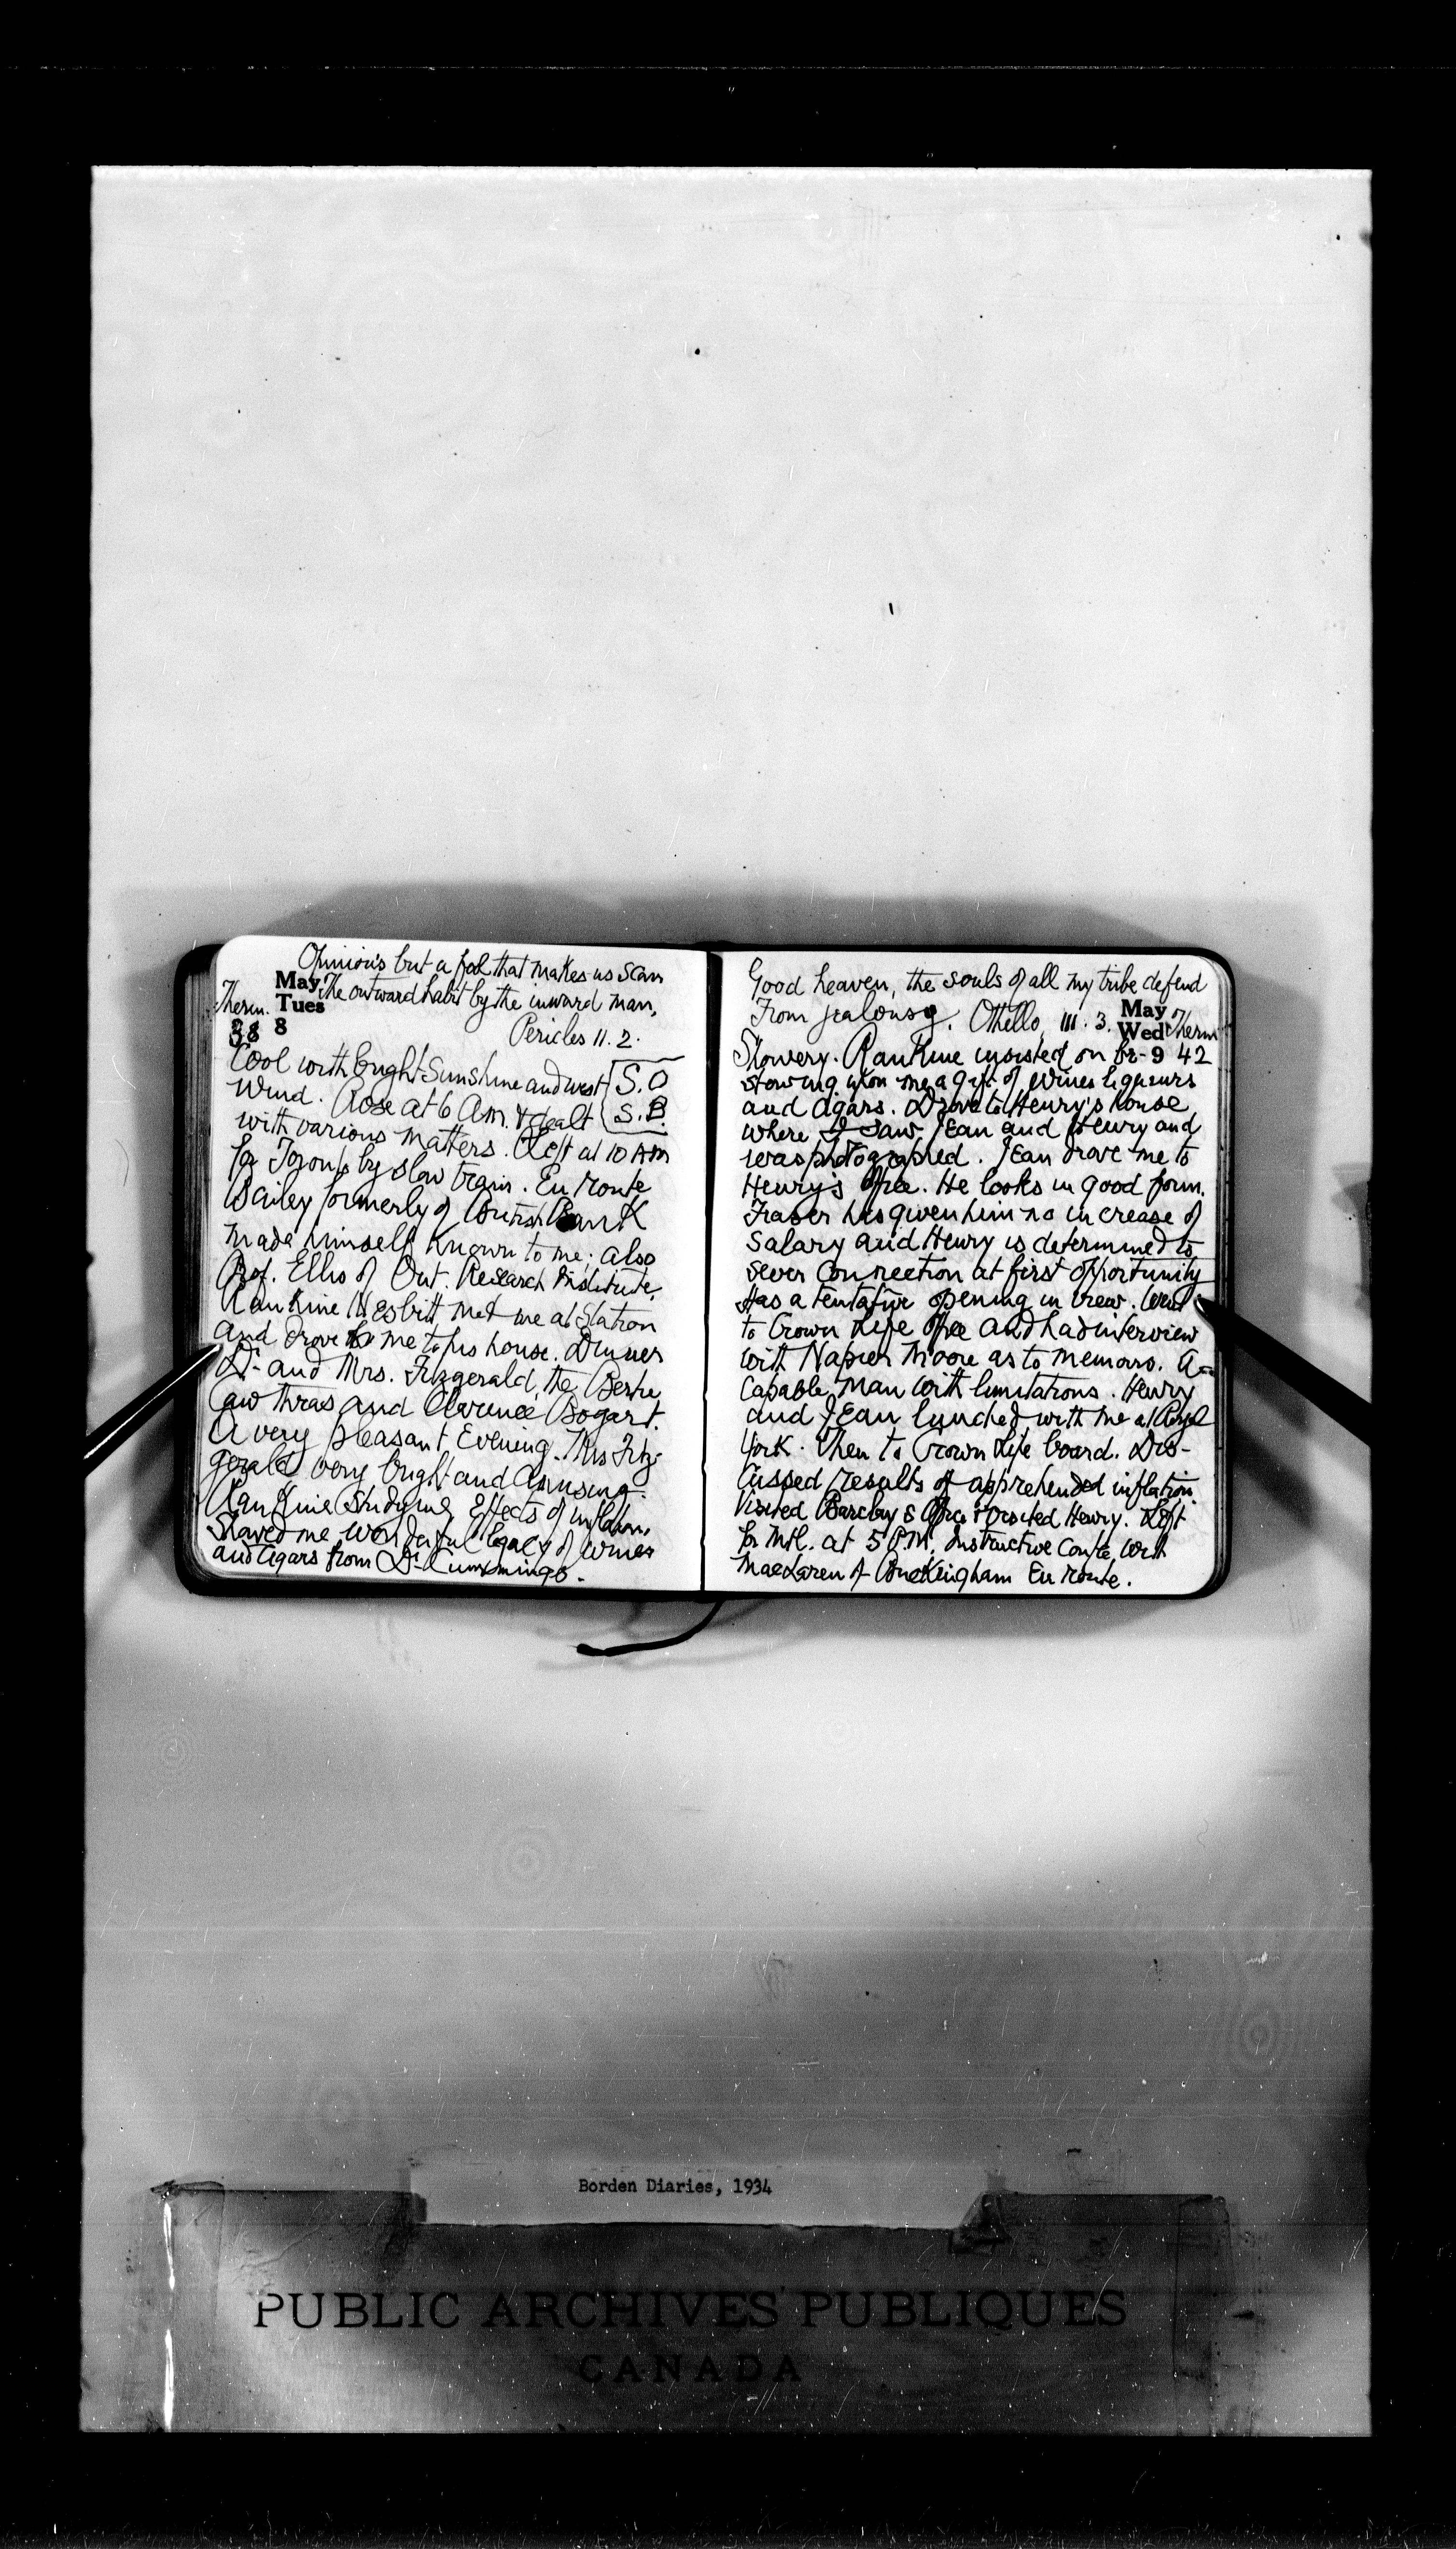 Opinion's but a fool that makes us scan
The outward habit by the inward man,
Pericles 11.2.
May
Tues
8
Therm.
38
Cool with bright Sunshine and west
Wind. Rose at 6 A.m. & dealt
S.O
S.B.
with various matters. Left at 10 AM
for Toronto by slow train. En route
Bailey formerly of British Bank
made himself known to me; also
Prof. Ellis of Ont. Research Institute.
Rankine Nesbitt met me at Station
and drove me to his house. Dinner
Dr. and Mrs. Fitzgerald, the Bertie
Cawthras and Clarence Bogart.
A very pleasant Evening. Mrs Fitz-
gerald very bright and Amusing.
Rankine Studying Effects of inflation.
Showed me wonderful legacy of wines
and Cigars from Dr. Cummings.
Good heaven, the souls of all my tribe defend
From jealousy. Othello III. 3.
May
Wed
9
Therm
42
Showery. Rankine insisted on be-
stowing upon me a gift of Wines liqueurs
and Cigars. Drove to Henry's house
where I saw Jean and Henry and
was photographed. Jean drove me to
Henry's office. He looks in good form.
Fraser has given him no increase of
Salary and Henry is determined to
sever Connection at first opportunity
Has a tentative opening in view. Went
to Crown Life office and had interview
with Napier Moore as to memoirs. A
Capable man with limitations. Henry
and Jean lunched with me at Royal
York. Then to Crown Life board. Dis-
cussed results of apprehended inflation.
Visited Barclay's Office & visited Henry. Left
for Mtl. at 5 P.M. Instructive Confce with
MacLaren of Buckingham En route.
Borden Diaries, 1934
PUBLIC ARCHIVES PUBLIQUES
CANADA